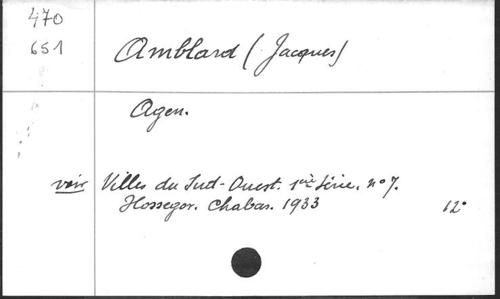 470
651
Amblard (Jacques)
Agen.
voir Villes du Sud-Ouest. 1ère série. n° 7.
Hossegor. Chabas. 1933 12°